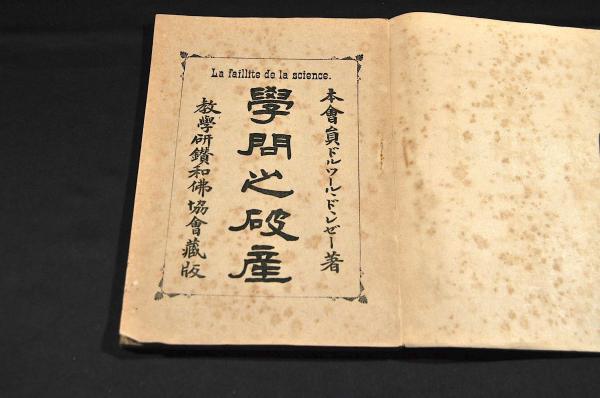 La faillite de la science.
本會員ドルワール・ド・レゼー著
學問之破產
教學硏鑽和佛協會藏版